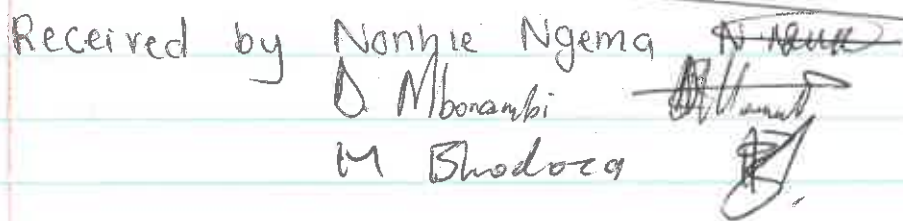 Received by Nonhle Ngema
D Mbonambi
M Bhodoza